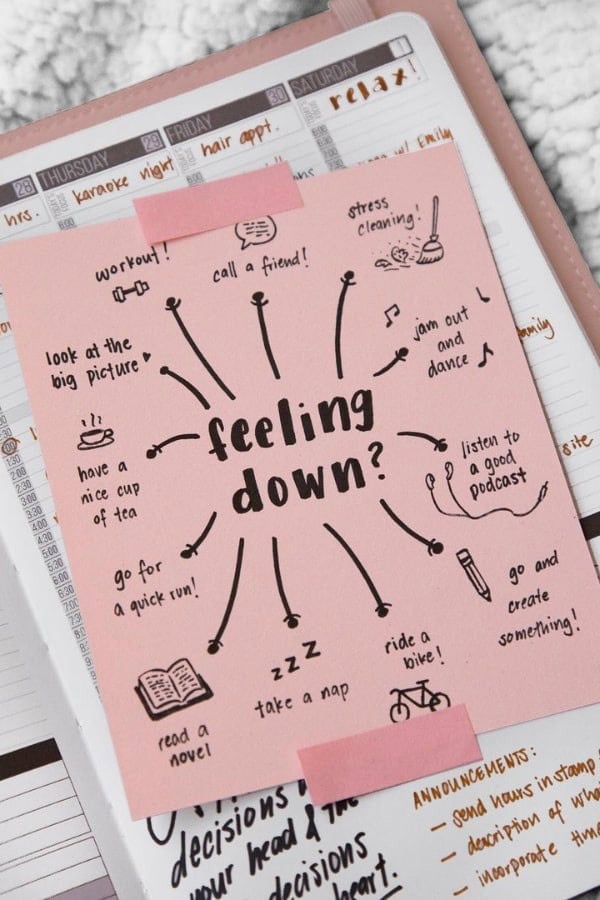 1
SATURDAY
relax!
30
FRIDAY
hair appt.
29
THURSDAY
karaoke night
28
hrs.
w/ Emily
stress
cleaning!
call a friend!
workout!
jam out
and
dance
look at the
big picture
family
feeling
down?
listen to
a good
podcast
have a
nice cup
of tea
site
go for
a quick run!
go and
create
something!
ride a
bike!
zzz
take a nap
read a
novel
ANNOUNCEMENTS:
– send hours in stamp
– description of
– incorporate
decisions
your head & the
decisions
heart.